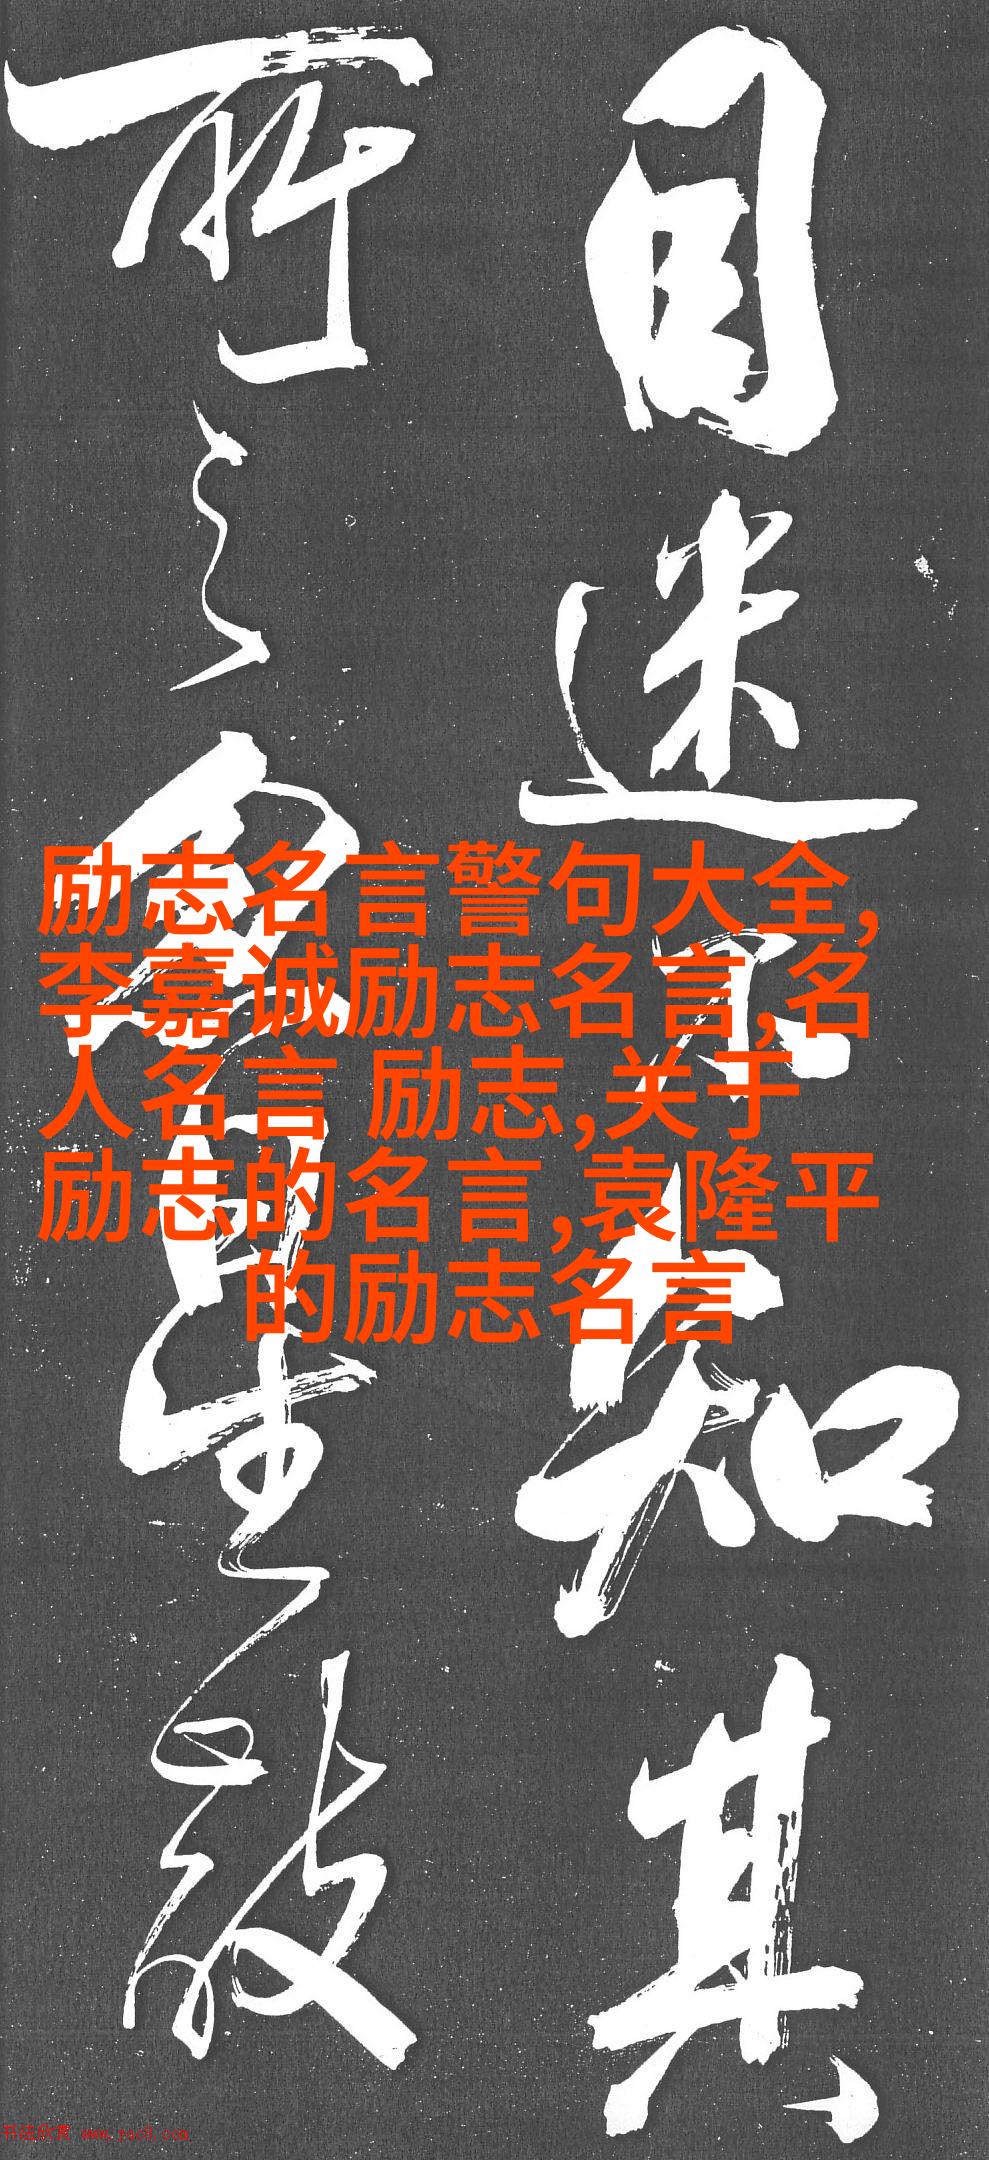 目迷不知其
所之矣星生敲
励志名言警句大全,
李嘉诚励志名言,名
人名言 励志,关于
励志的名言,袁隆平
的励志名言
书法欣赏